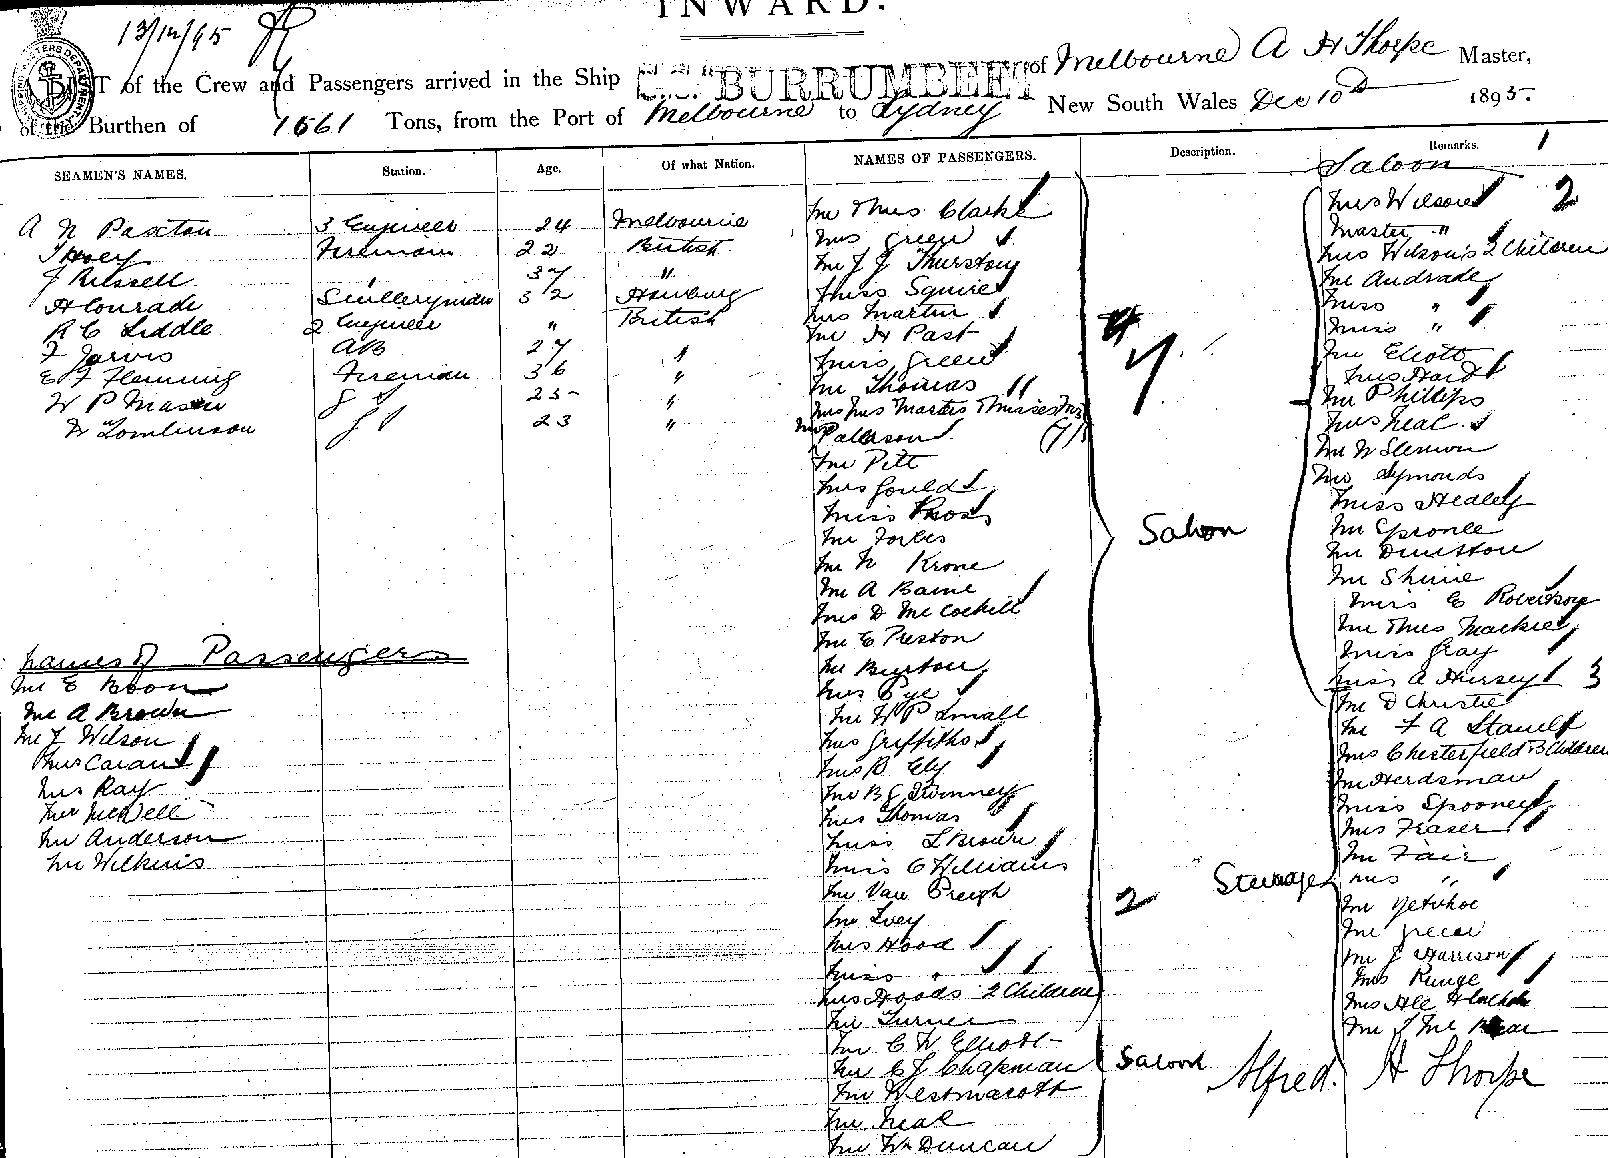 INWARD.
13/12/95
LIST of the Crew and Passengers arrived in the Ship S.S. "BURRUMBEET of Melbourne A H Thorpe Master,
of the Burthen of 1561 Tons, from the Port of Melbourne to Sydney New South Wales Dec 10th 1895.
SEAMEN'S NAMES. Station. Age. Of what Nation. NAMES OF PASSENGERS. Description. Remarks. 1
A N Paxton 3 Engineer 24 Melbourne
Hoey Fireman 22 British
J Russell 37 "
H Conrade Sculleryman 32 Hamburg
R C Liddle 2 Engineer " British
F Jarvis AB 27 "
E F Fleming Fireman 36 "
W P Mason 25 "
W Tomlinson 23 "
Names of Passengers
Mr E Boon
Mr A Brown
Mr J Wilson
Mrs
Mrs Ray
Anderson
Mr Wilkins
Mr Mrs Clarke
Mrs Green
Mr J J Thurston
Miss Squire
Mrs Martin
Mr H Past
Miss Green
Mr Thomas
Paterson (7)
Mr Pitt
Mrs Gould
Miss Ross
Mr Forbes
Mr N Krone
Mr A Baine
Mrs D McCockill
Mr E Preston
Mr Burton
Mrs Pye
Mr W P Small
Mrs Griffiths
Mrs B Ely
Mr B J Swinney
Mrs Thomas
Miss L Brown
Miss C Williams
Mr Van Preigh
Mr Ivey
Mrs Hood
Miss "
Mrs Hoods 2 Children
Mr Turner
Mr C W Elliott
Mr C J Chapman
Mr Westmacott
Mr Neal
Mr Wm Duncan
4
7
Saloon
2 Steerage
Saloon
Saloon
Mrs Wilson 2
Master "
Mrs Wilson's 2 Children
Mr Andrade
Miss "
Miss "
Mr Eliott
Mrs Hard
Mr Phillips
Mrs Neal
Mr W
Symonds
Miss Healey
Mr Sproule
Mr Dunston
Mr Shine
Miss E Robertson
Mr Mrs Mackie
Miss Gray
Miss A Hursey 3
Mr D Christie
Mr F A
Mrs Chesterfield 3 Children
Mr Herdsman
Miss Spooney
Mrs Fraser
Mr Fair
Mrs "
Mr
Mr
Mr J Harrison
Mrs Runge
Mrs
Mr J Mc
Alfred H Thorpe